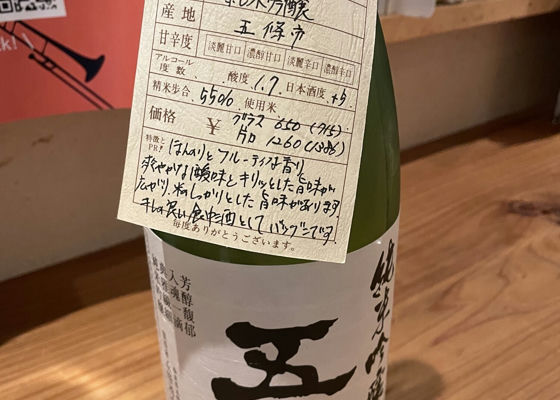 産地 五條市
甘辛度 淡麗甘口 濃醇甘口 淡麗辛口 濃醇辛口
アルコール度数 酸度 1.7 日本酒度 +5
精米歩合 55% 使用米
価格 ¥ グラス 650 (715)
片口 1260 (1386)
特徴とPR! ほんのりとフルーティな香り
爽やかな酸味とキリッとした旨味が
広がり、米のしっかりとした旨味があります。
キレの良い食中酒としてバツグンです。
毎度ありがとうございます。
純米吟醸
五
芳醇馥郁